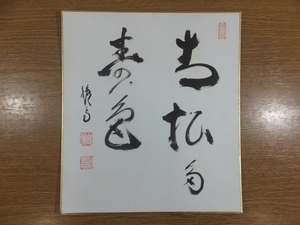 青松多
寿色